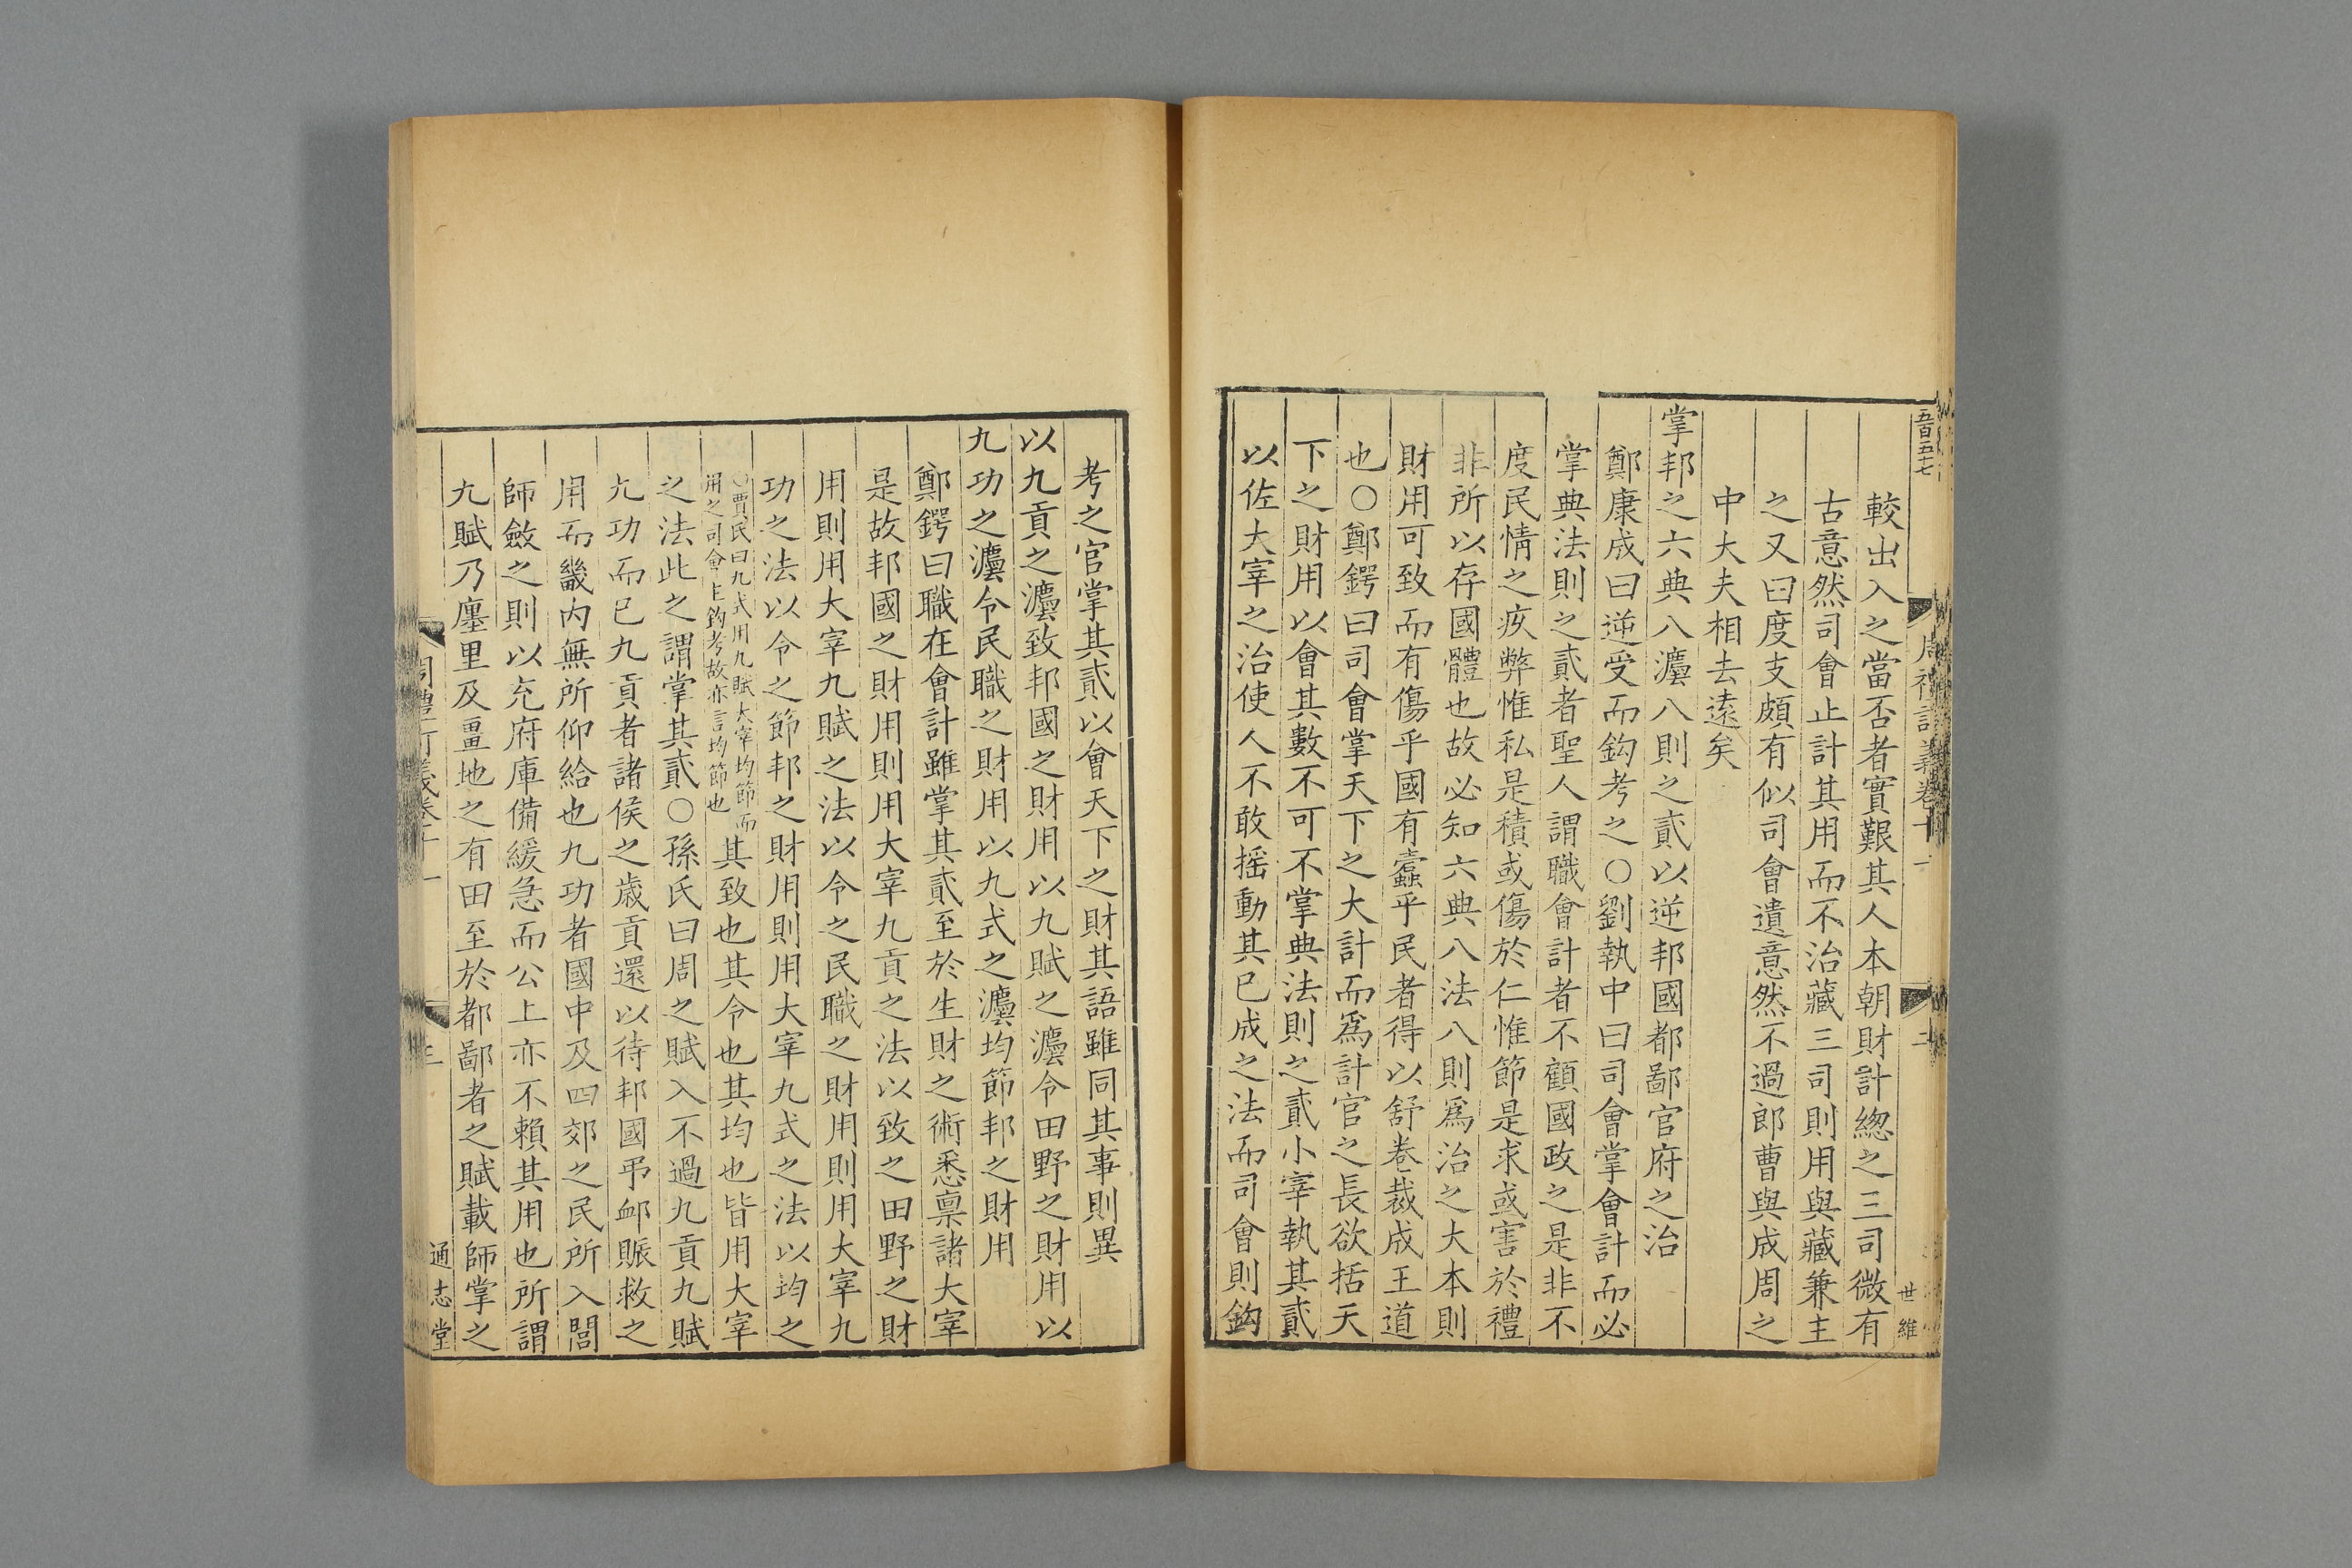 五百五七
周禮訂義卷十一
二
世維
較出入之當否者實艱其人本朝財計總之三司微有
古意然司會止計其用而不治藏三司則用與藏兼主
之又曰度支頗有似司會遺意然不過郎曹與成周之
中大夫相去遠矣
掌邦之六典八灋八則之貳以逆邦國都鄙官府之治
鄭康成曰逆受而鈎考之○劉執中曰司會掌會計而必
掌典法則之貳者聖人謂職會計者不顧國政之是非不
度民情之疚弊惟私是積或傷於仁惟節是求或害於禮
非所以存國體也故必知六典八法八則爲治之大本則
財用可致而有傷乎國有蠹乎民者得以舒卷裁成王道
也○鄭鍔曰司會掌天下之大計而爲計官之長欲括天
下之財用以會其數不可不掌典法則之貳小宰執其貳
以佐大宰之治使人不敢摇動其已成之法而司會則鈎
考之官掌其貳以會天下之財其語雖同其事則異
以九貢之灋致邦國之財用以九賦之灋令田野之財用以
九功之灋令民職之財用以九式之灋均節邦之財用
鄭鍔曰職在會計雖掌其貳至於生財之術悉禀諸大宰
是故邦國之財用則用大宰九貢之法以致之田野之財
用則用大宰九賦之法以令之民職之財用則用大宰九
功之法以令之節邦之財用則用大宰九式之法以均之
○賈氏曰九式用九賦大宰均節而
用之司會主鈎考故亦言均節也
其致也其令也其均也皆用大宰
之法此之謂掌其貳○孫氏曰周之賦入不過九貢九賦
九功而已九貢者諸侯之歲貢還以待邦國弔䘏賑救之
用而畿内無所仰給也九功者國中及四郊之民所入閭
師斂之則以充府庫備緩急而公上亦不賴其用也所謂
九賦乃廛里及畺地之有田至於都鄙者之賦載師掌之
周禮訂義卷十一
三
通志堂